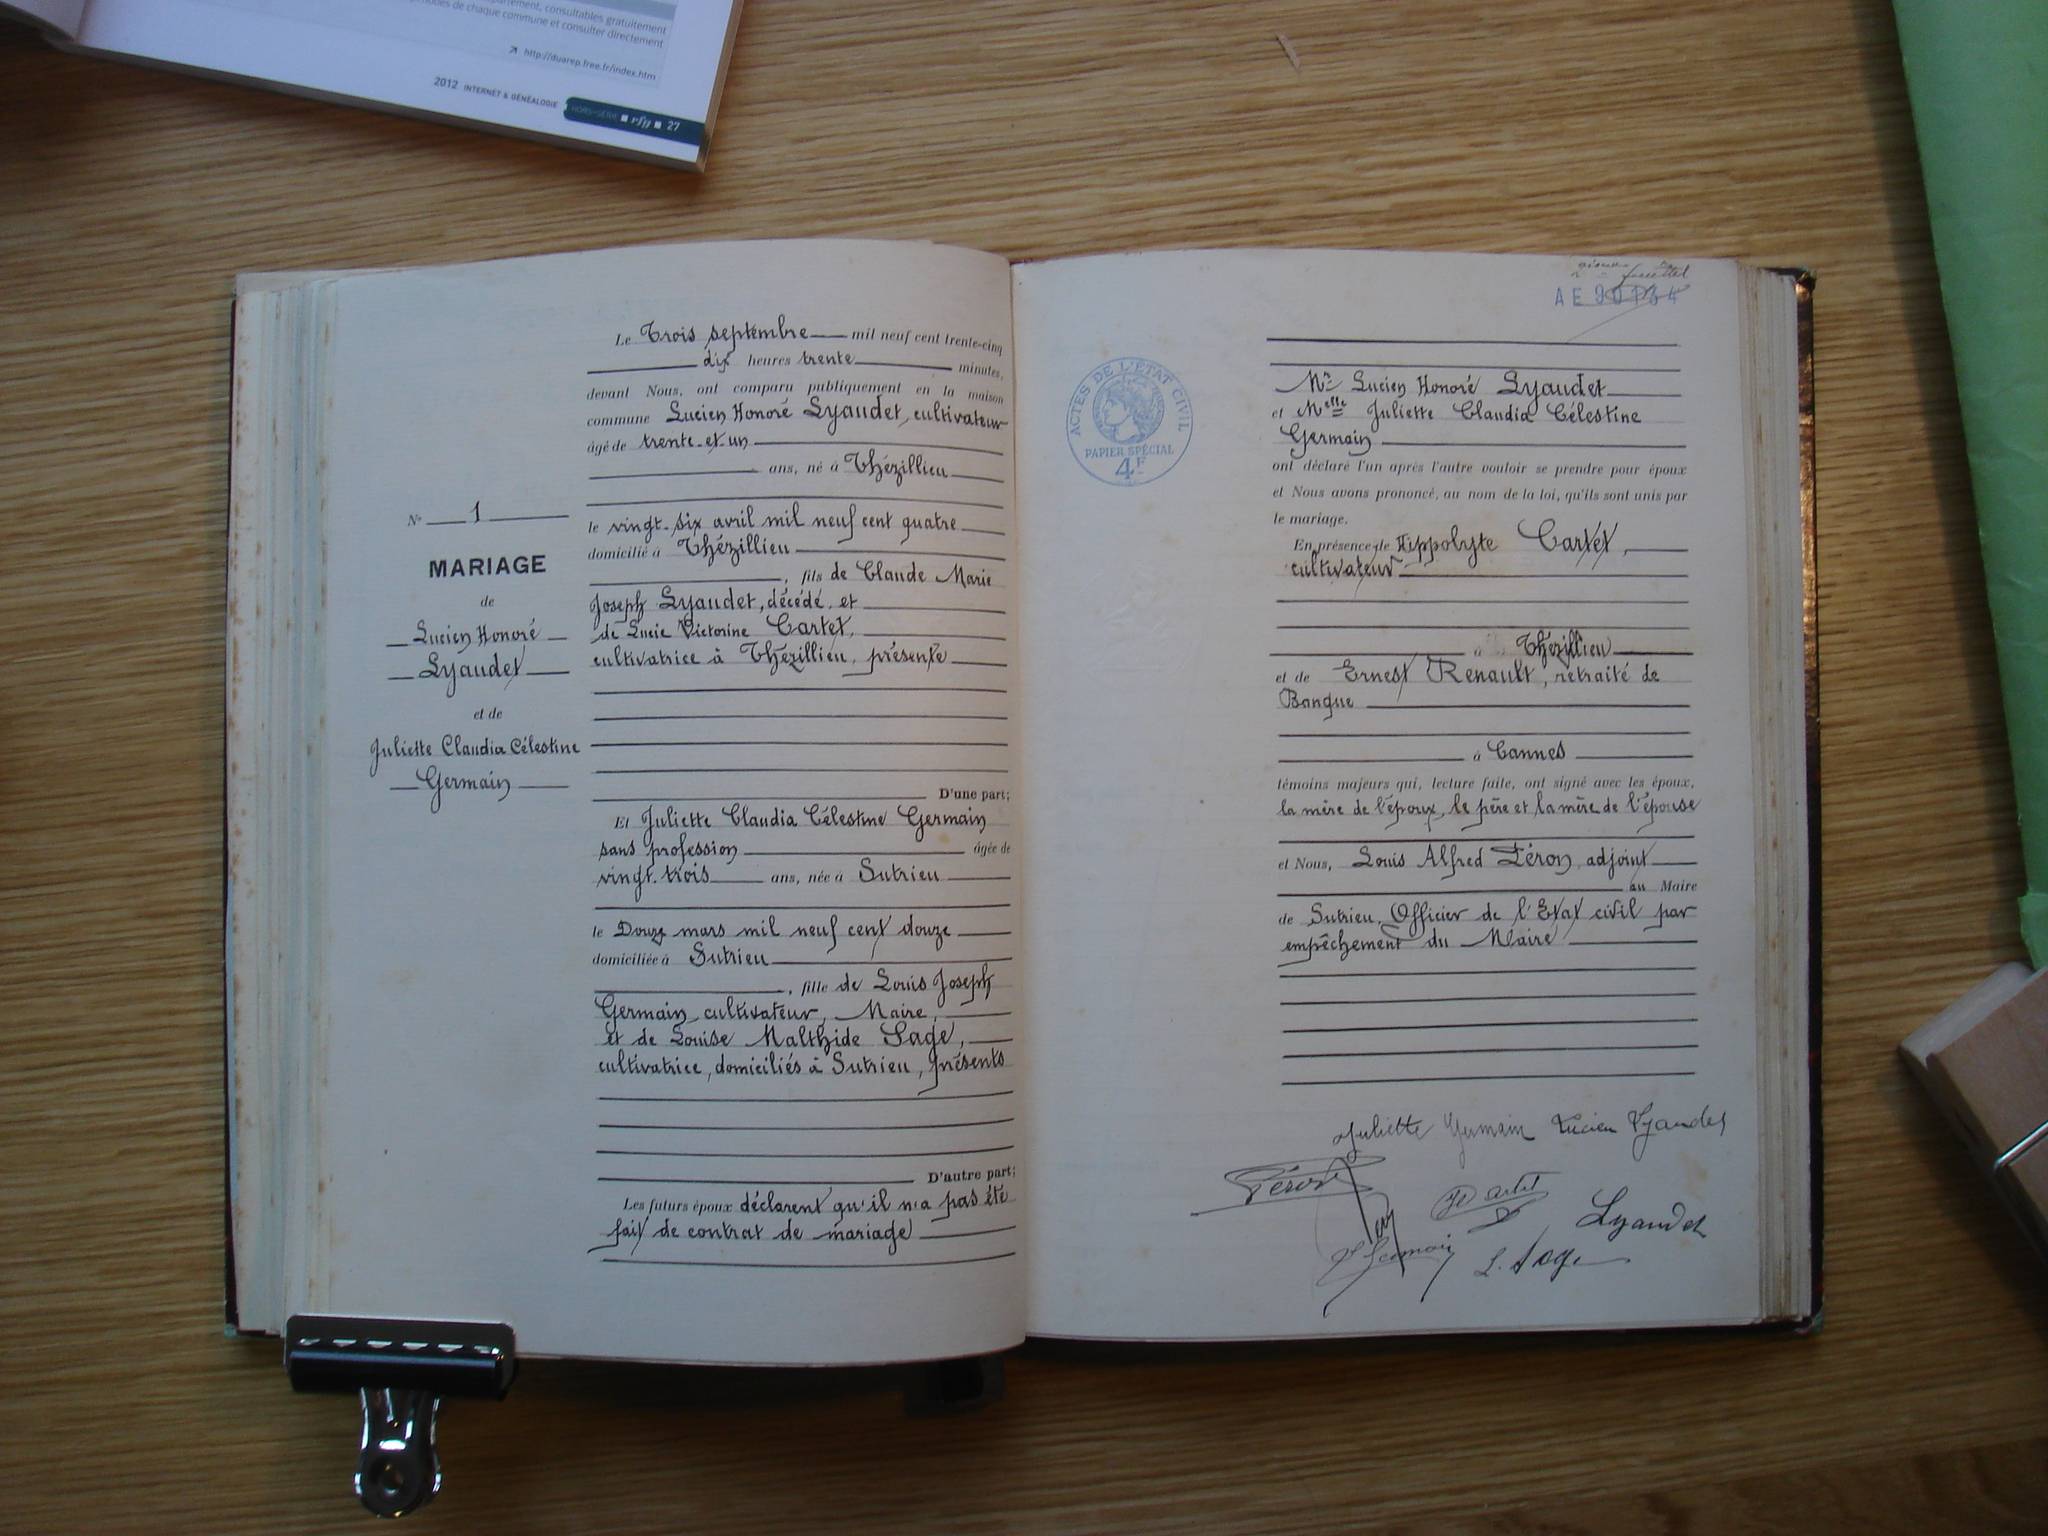 partement, consultables gratuitement
de chaque commune et consulter directement
http://duarep.free.fr/index.htm
2012 INTERNET & GÉNÉALOGIE HORS-SÉRIE rfg 27
Le Trois septembre mil neuf cent trente-cinq
dix heures trente minutes,
devant Nous, ont comparu publiquement en la maison
commune Lucien Honoré Lyaudet, cultivateur
âgé de trente-et-un
ans, né à Thézillieu
le vingt-six avril mil neuf cent quatre
domicilié à Thézillieu
, fils de Claude Marie
Joseph Lyaudet, décédé, et
de Lucie Victorine Cartet,
cultivatrice à Thézillieu, présente
D'une part;
Et Juliette Claudia Célestine Germain
sans profession âgée de
vingt-trois ans, née à Sutrieu
le Douze mars mil neuf cent douze
domiciliée à Sutrieu
, fille de Louis Joseph
Germain, cultivateur, Maire,
et de Louise Malthide Sage,
cultivatrice, domiciliés à Sutrieu, présents
D'autre part;
Les futurs époux déclarent qu'il n'a pas été
fait de contrat de mariage
N° 1
MARIAGE
de
Lucien Honoré
Lyaudet
et de
Juliette Claudia Célestine
Germain
AE
ACTES DE L'ÉTAT CIVIL
PAPIER SPÉCIAL
4F
Mr Lucien Honoré Lyaudet
et Melle Juliette Claudia Célestine
Germain
ont déclaré l'un après l'autre vouloir se prendre pour époux
et Nous avons prononcé, au nom de la loi, qu'ils sont unis par
le mariage.
En présence de Hippolyte Cartet,
cultivateur
à Thézillieu
et de Ernest Renault, retraité de
Banque
à Cannes
témoins majeurs qui, lecture faite, ont signé avec les époux,
la mère de l'époux, le père et la mère de l'épouse
et Nous, Louis Alfred Péron, adjoint
au Maire
de Sutrieu, Officier de l'Etat civil par
empêchement du Maire
Juliette Germain Lucien Lyaudet
Péron
Cartet
Lyaudet
Germain
L. Sage